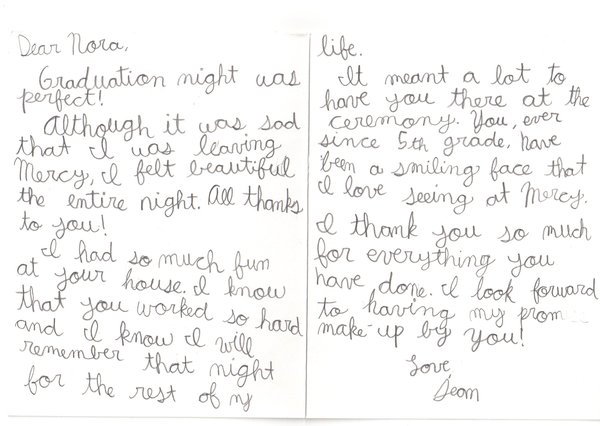 Dear Nora,
Graduation night was
perfect!
Although it was sad
that I was leaving
Mercy, I felt beautiful
the entire night. All thanks
to you!
I had so much fun
at your house. I know
that you worked so hard
and I know I will
remember that night
for the rest of my
life.
It meant a lot to
have you there at the
ceremony. You, ever
since 5th grade, have
been a smiling face that
I love seeing at Mercy.
I thank you so much
for everything you
have done. I look forward
to having my prom
make-up by you!
Love,